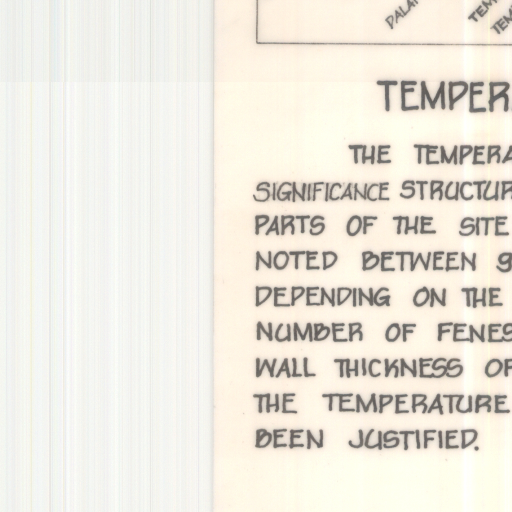 TEMPER
THE TEMPERA
SIGNIFICANCE STRUCTUR
PARTS OF THE SITE
NOTED BETWEEN 9
DEPENDING ON THE
NUMBER OF FENES
WALL THICKNESS OF
THE TEMPERATURE
BEEN JUSTIFIED.